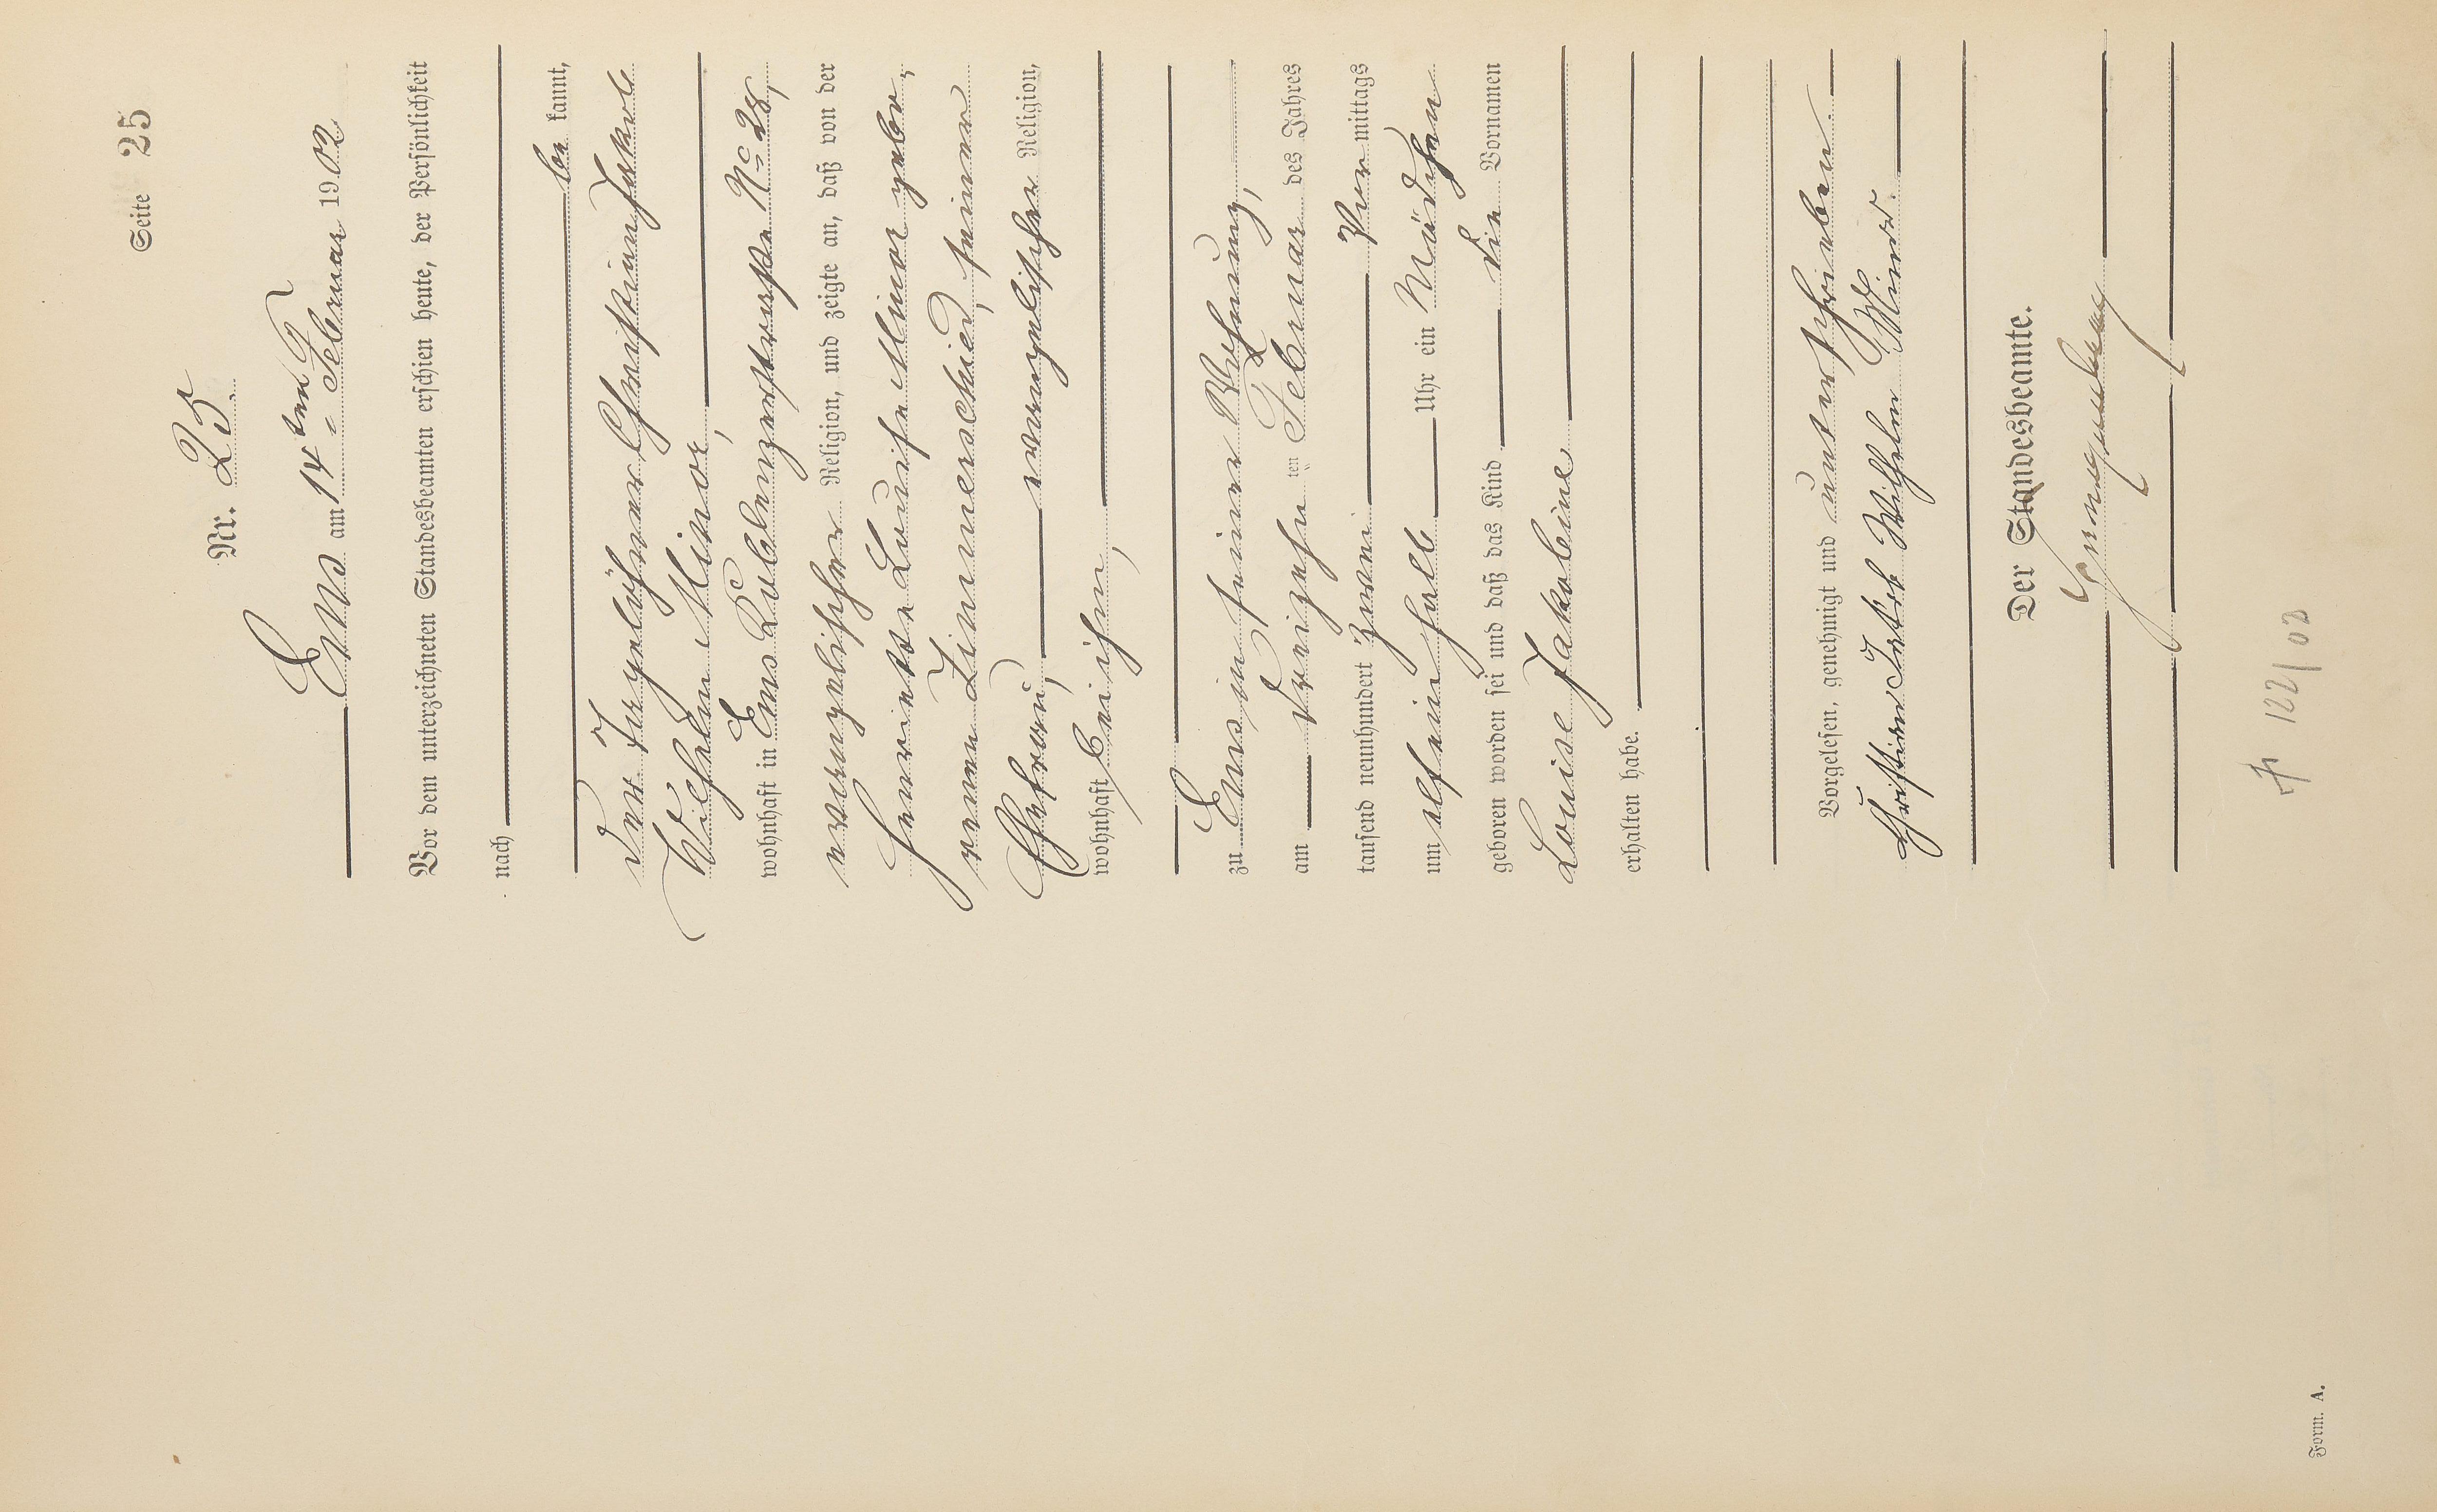 Seite 25
Nr. 25.
Ems am 14ten Februar 1902
Vor dem unterzeichneten Standesbeamten erschien heute, der Persönlichkeit
nach
be kannt,
der Tagelöhner Christian Jakob
Wilhelm Minor,
wohnhaft in Ems Coblenzerstraße No 28,
evangelischer Religion, und zeigte an, daß von der
Henriette Louise Minor gebo-
renen Zimmerschied, seiner
Ehefrau, evangelischer Religion,
wohnhaft bei ihm,
zu Ems in seiner Wohnung,
am dreizehnten Februar des Jahres
tausend neunhundert zwei Vormittags
um elfeinhalb Uhr ein Mädchen
geboren worden sei und daß das Kind die Vornamen
Louise Jakobine
erhalten habe.
Vorgelesen, genehmigt und unterschrieben.
Christian Jakob Wilhelm Minor.
Der Standesbeamte.
122/02
Form. A.